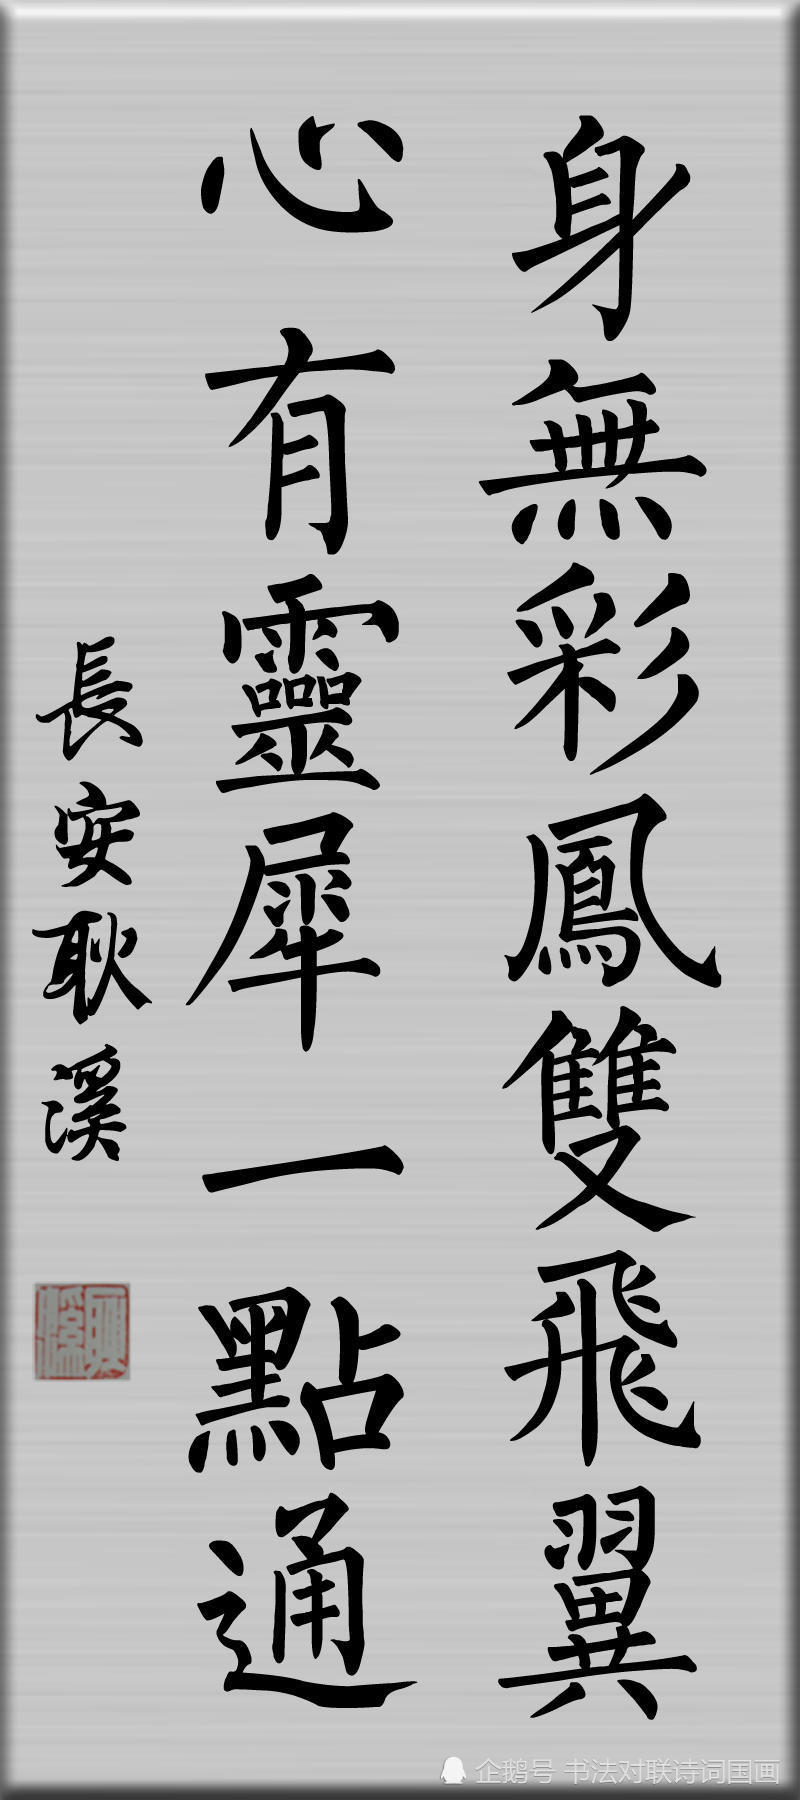 身無彩鳳雙飛翼
心有靈犀一點通
長安耿溪
企鹅号 书法对联诗词国画